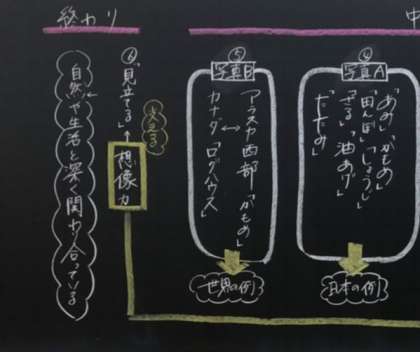 中
④
写真A
「あみ」「かもめ」
「田んぼ」「しょうじ」
「ざる」「油あげ」
「たたみ」
日本の例
⑤
写真B
アラスカ西部「かもめ」
カナダ「ログハウス」
世界の例
終わり
⑥「見立てる」↑想像力
支える
自然や生活と深く関わり合っている